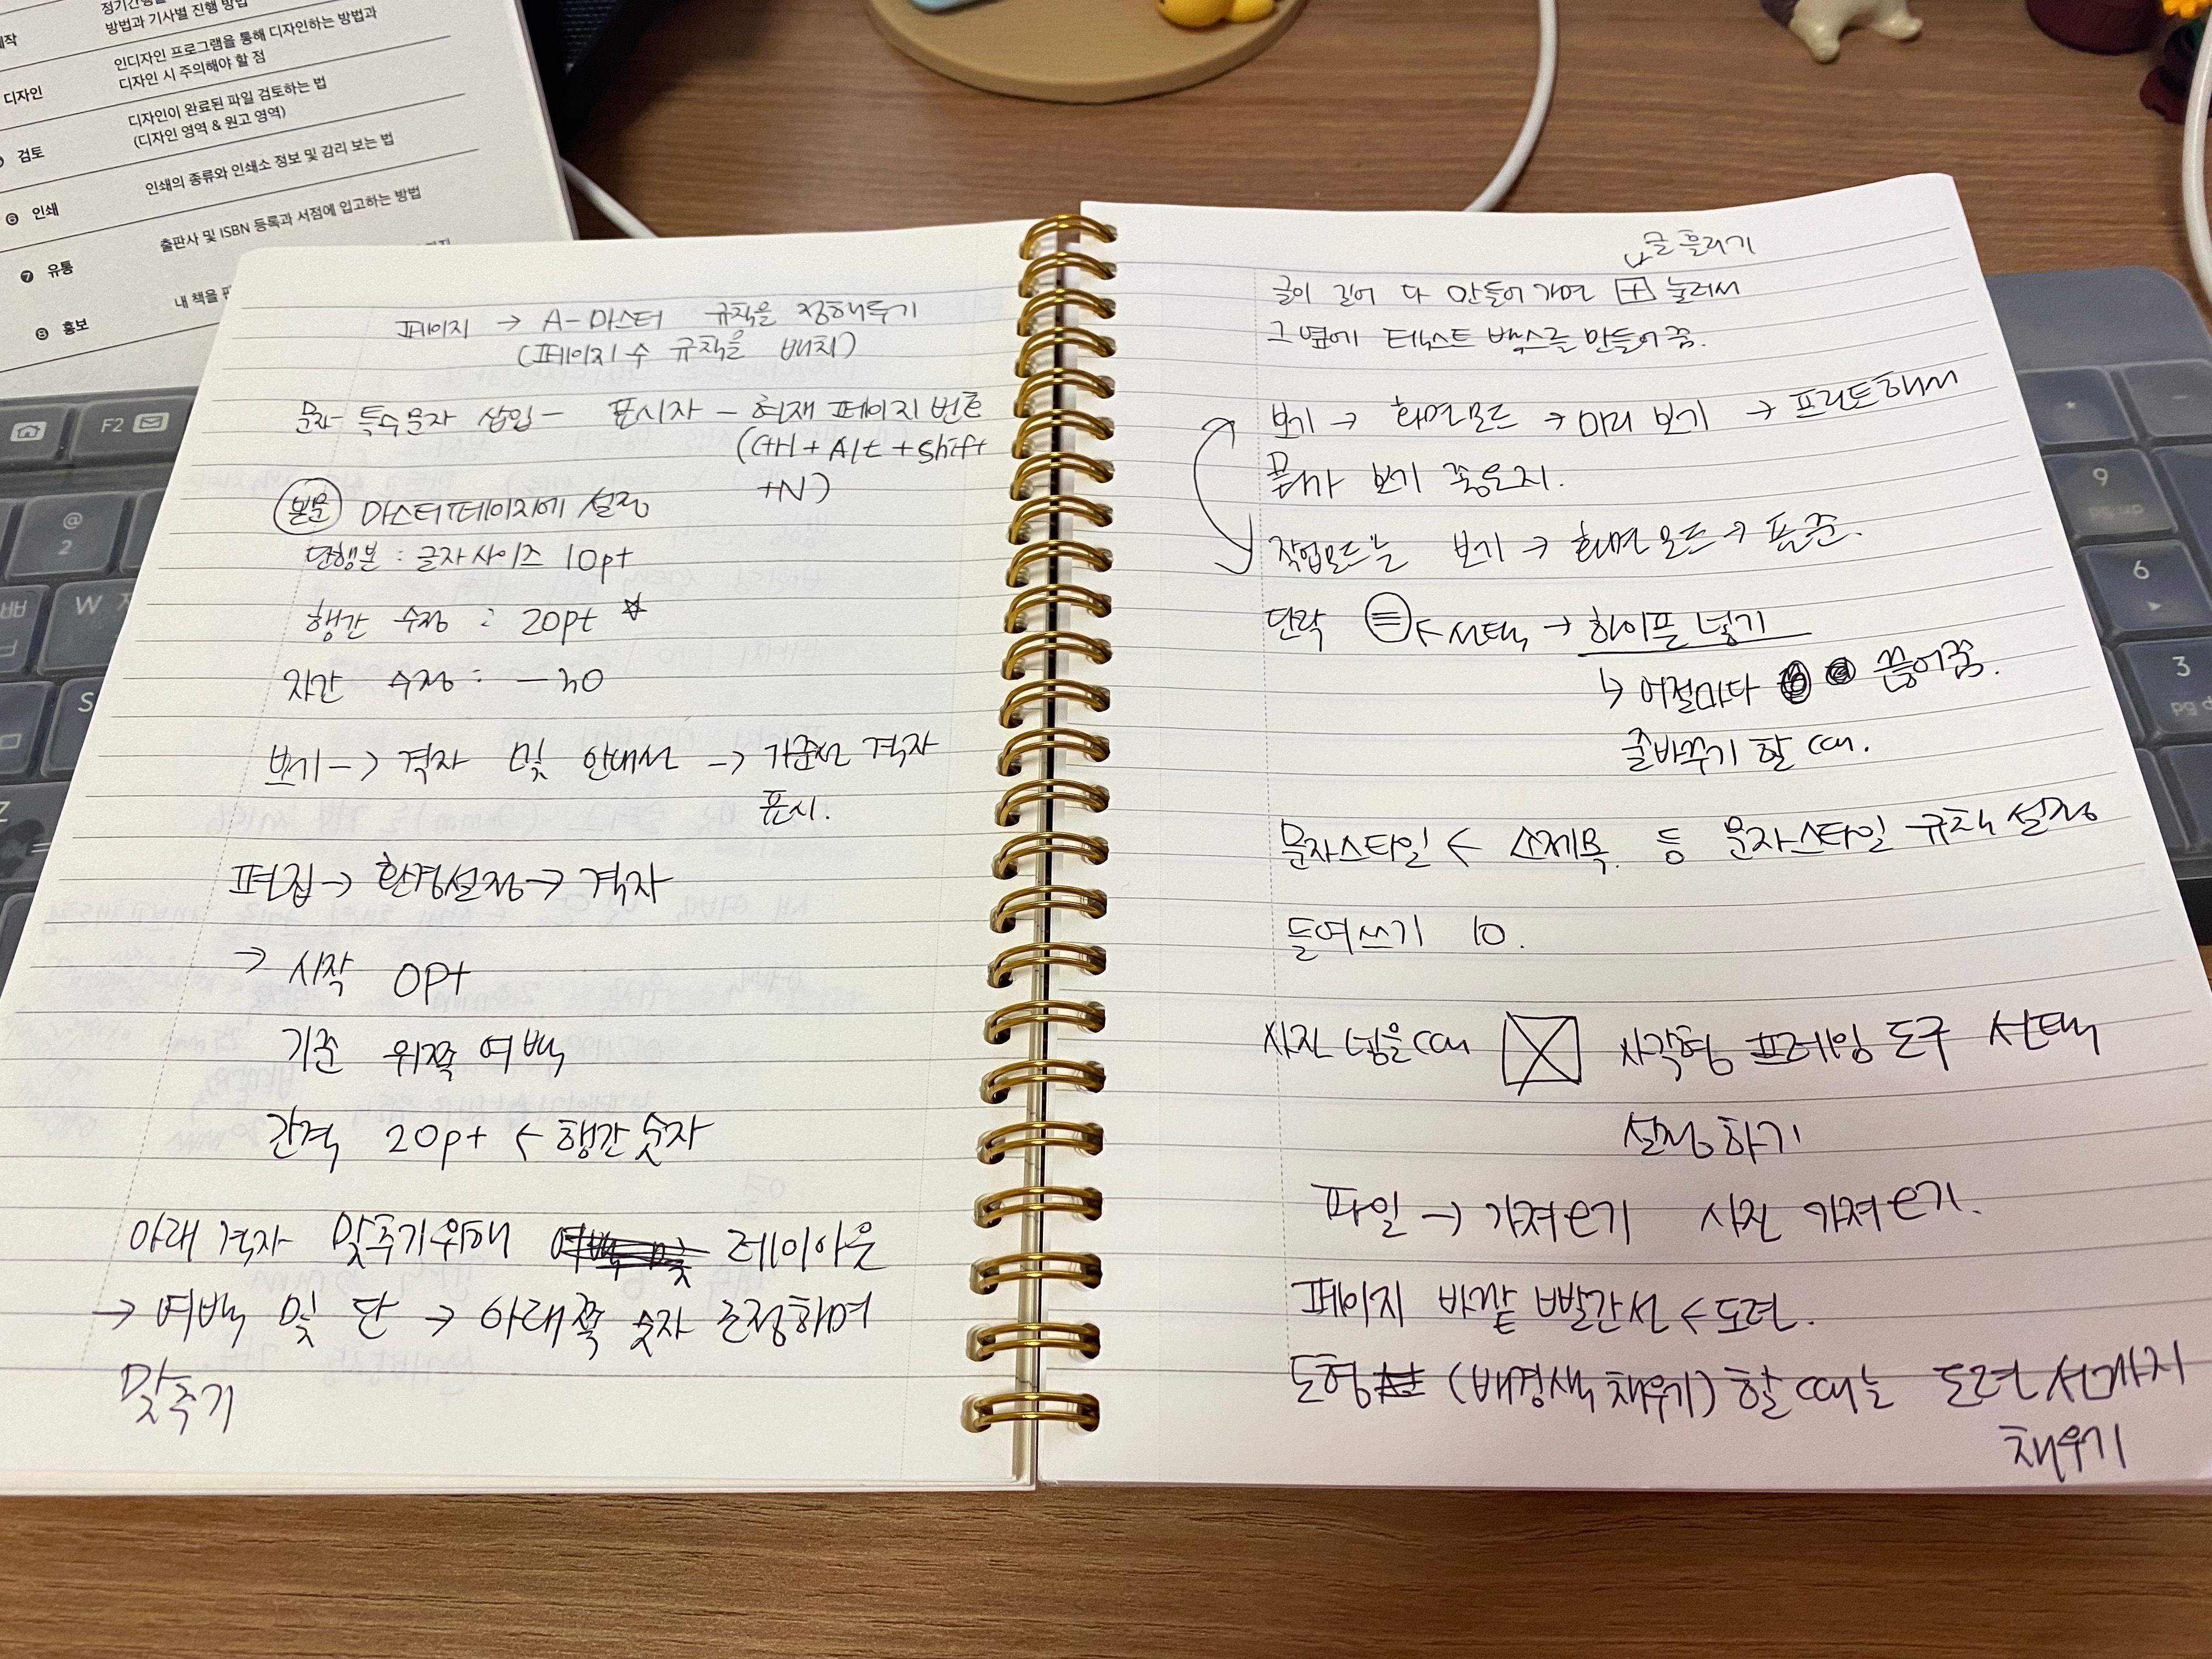 정기간행물
방법과 기사별 진행 방법
인디자인 프로그램을 통해 디자인하는 방법과
디자인 시 주의해야 할 점
디자인
디자인이 완료된 파일 검토하는 법
(디자인 영역 & 원고 영역)
검토
인쇄의 종류와 인쇄소 정보 및 감리 보는 법
⑥ 인쇄
출판사 및 ISBN 등록과 서점에 입고하는 방법
❼ 유통
내 책을
⑧ 홍보
페이지 → A-마스터 규칙을 정해두기
(페이지 수 규칙을 배치)
문자- 특수문자 삽입 - 표시자 - 현재 페이지 번호
(Ctrl + Alt + Shift
+N)
본문 마스터페이지에 설정
단행본 : 글자 사이즈 10pt
행간 수정 : 20pt ☆
자간 수정 : -30
보기 -> 격자 및 안내선 -> 기준선 격자
표시.
편집 → 환경설정 → 격자
→ 시작 0pt
기준 위쪽 여백
간격 20pt ← 행간 숫자
아래 격자 맞추기위해 레이아웃
→ 여백 및 단 → 아래쪽 숫자 조정하며
맞추기
↳ 글 흘리기
글이 길어 다 안들어가면 [+] 눌러서
그 옆에 텍스트 박스를 만들어줌.
보기 → 화면모드 → 미리 보기 → 프린트해서
뭐가 보기 좋은지.
작업모드는 보기 → 화면 모드 → 표준.
단락 ≡ ← 선택 → 하이픈 넣기
↳ 어절마다 끊어줌.
줄바꾸기 할 때.
문자스타일 ← 소제목 등 문자스타일 규칙 설정
들여쓰기 10.
사진 넣을때 사각형 프레임 도구 선택
설정하기
파일 → 가져오기 사진 가져오기.
페이지 바깥 빨간선 ← 도련.
도형 (배경색 채우기) 할 때는 도련 선까지
채우기
F2
@
2
W
S
Z
*
-
9
pg up
6
3
pg d